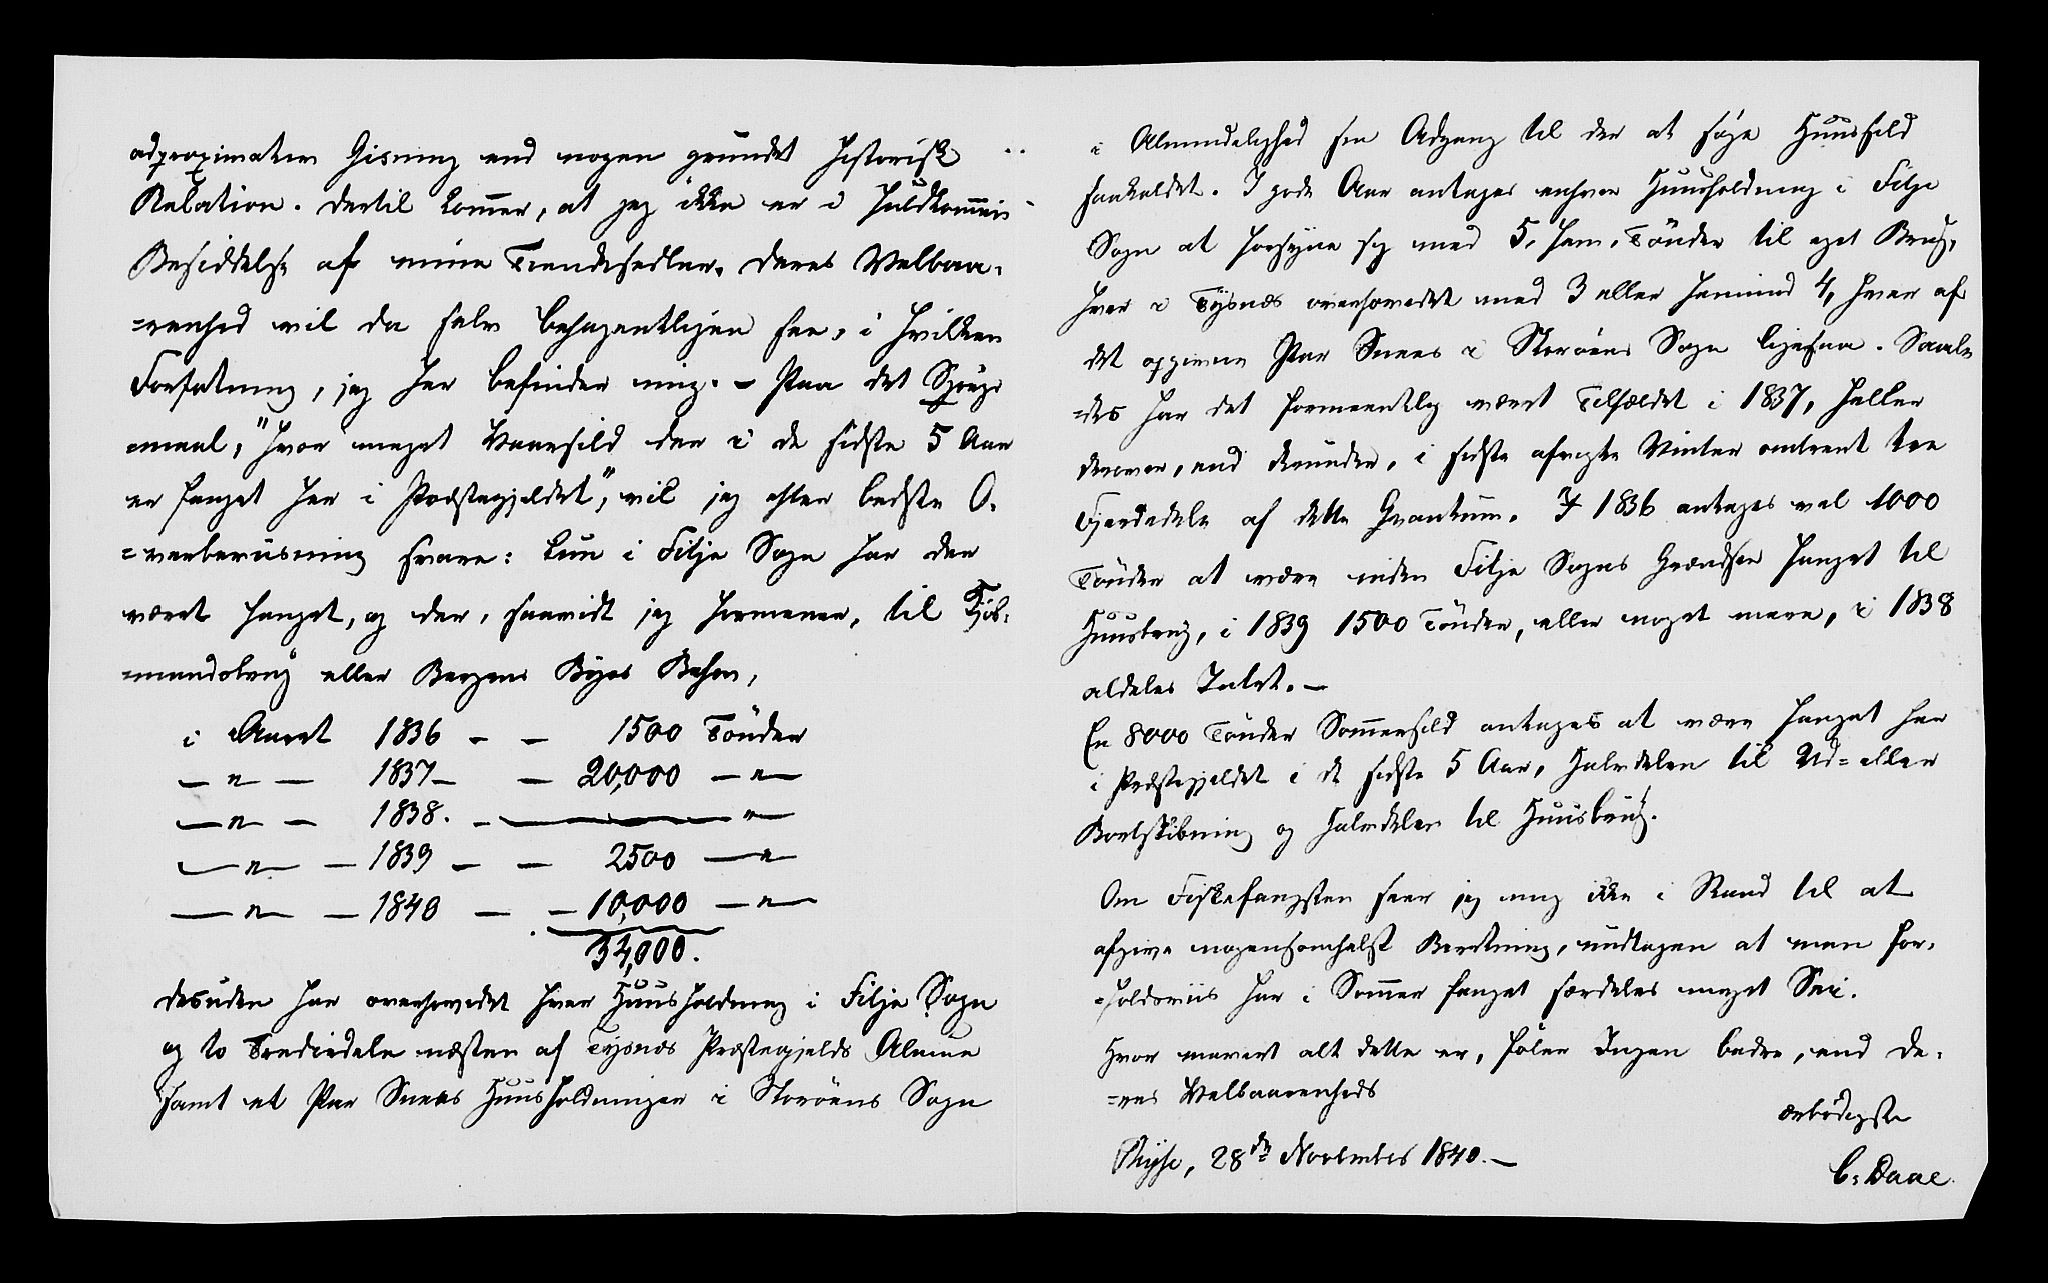 adproximativ Gisning end nogen grundet historisk
Relation. Dertil kommer, at jeg ikke er i fuldkommen
Besiddelse af mine Tiendesedler. Deres Velbaa-
=renhed vil da selv behageligen see, i hvilken
Forfatning, jeg her befinder mig. – Paa det Spørgs
=maal, "hvor meget Vaarsild der i de sidste 5 Aar
er fanget her i Præstegjeldet", vil jeg efter bedste O-
=verbeviisning svare: kun i Fitje Sogn har der
været fanget, og der, saavidt jeg formener, til Kjøb-
=mandsbrug eller Bergens Byes Behov,
i Aaret 1836 – – 1500 Tönder
– " – 1837 – – 20,000 – " –
– " – 1838. – – "
– " – 1839 – – 2500 – "
– " – 1840 – – 10,000 – " –
34,000.
desuden har overhovedet hver Huusholdning i Fitje Sogn
og to Trediedele næsten af Tysnæs Præstegjelds Almue
samt et Par Snees Huusholdninger i Storöens Sogn
i Almindelighed fra Adgang til der at søge Huussild
faaet det. I gode Aar antages enhver Huusholdning i Fitje
Sogn at forsyne sig med 5, fem, Tönder til eget Brug,
hver i Tysnæs overhovedet med 3 eller henimod 4, hver af
det opgivne Par Snees i Storöens Sogn ligesaa. Saale
=des har det formeentlig været Tilfældet i 1837, heller
derover, end derunder, i sidste afvigte Vinter omtrent tre
Fjerdedele af dette Qvantum. I 1836 antages vel 1000
Tönder at være inden Fitje Sogns Grændser fanget til
Huusbrug, i 1839 1500 Tönder, eller noget mere, i 1838
aldeles Intet. –
En 8000 Tönder Sommersild antages at være fanget her
i Præstegjeldet i de sidste 5 Aar, Halvdelen til Ud= eller
Bortskibning og Halvdelen til Huusbrug.
Om Fiskefangsten seer jeg mig ikke i Stand til at
afgive nogensomhelst Beretning, undtagen at man for-
=holdsviis har i Sommer fanget særdeles meget Sei.
Hvor mavert alt dette er, føler Ingen bedre, end De-
=res Velbaarenheds
ærbödigste
28de November 1840. –
C. Daae